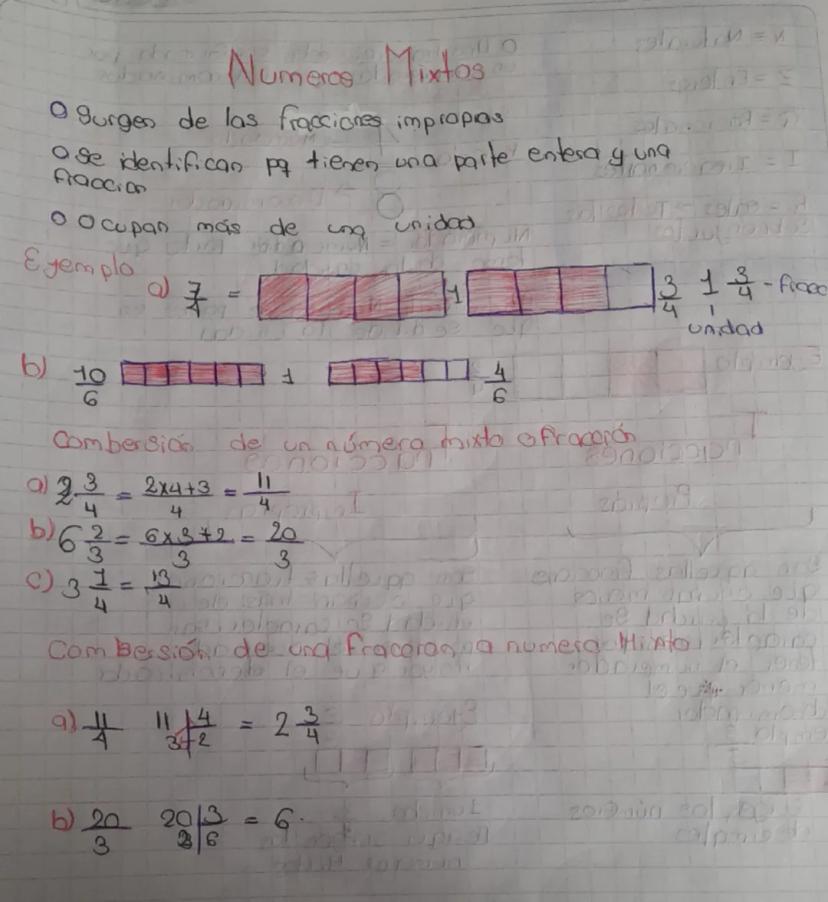 Numeros Mixtos
Surgen de las fracciones impropas
se identifican pq tienen una parte entera y una
fraccion
Ocupan más de una unidad
Ejemplo
a) 7/4 = 1 3/4 1 3/4 - fracc
unidad
b) 10/6 1 4/6
Combersión de un número mixto a fracción
a) 2 3/4 = 2x4+3/4 = 11/4
b) 6 2/3 = 6x3+2/3 = 20/3
c) 3 1/4 = 13/4
Combersión de una fraccion a numero Mixto
a) 11/4 11|4 = 2 3/4
3 2
b) 20/3 20|3 = 6
2|6